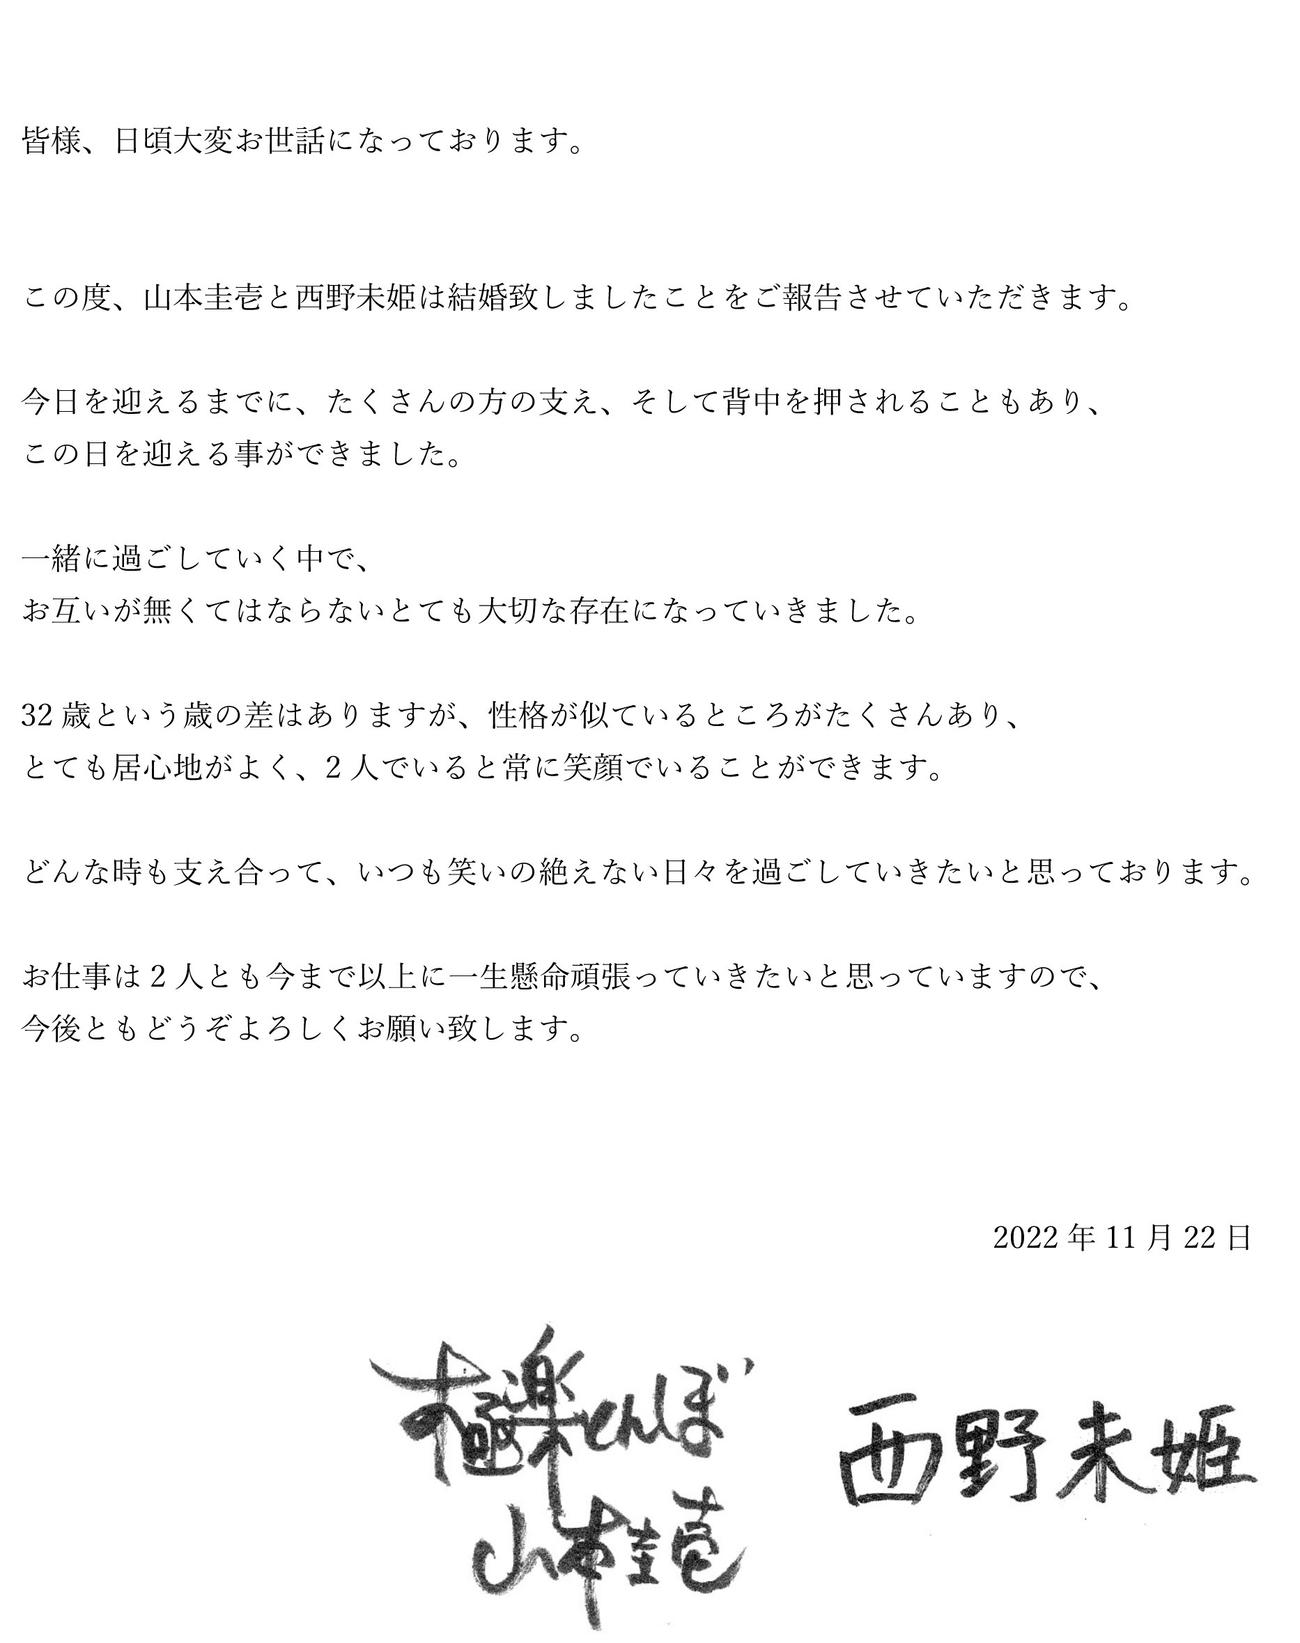 皆様、日頃大変お世話になっております。
この度、山本圭壱と西野未姫は結婚致しましたことをご報告させていただきます。
今日を迎えるまでに、たくさんの方の支え、そして背中を押されることもあり、
この日を迎える事ができました。
一緒に過ごしていく中で、
お互いが無くてはならないとても大切な存在になっていきました。
32 歳という歳の差はありますが、性格が似ているところがたくさんあり、
とても居心地がよく、2 人でいると常に笑顔でいることができます。
どんな時も支え合って、いつも笑いの絶えない日々を過ごしていきたいと思っております。
お仕事は 2 人とも今まで以上に一生懸命頑張っていきたいと思っていますので、
今後ともどうぞよろしくお願い致します。
2022 年 11 月 22 日
極楽とんぼ
山本圭壱
西野未姫